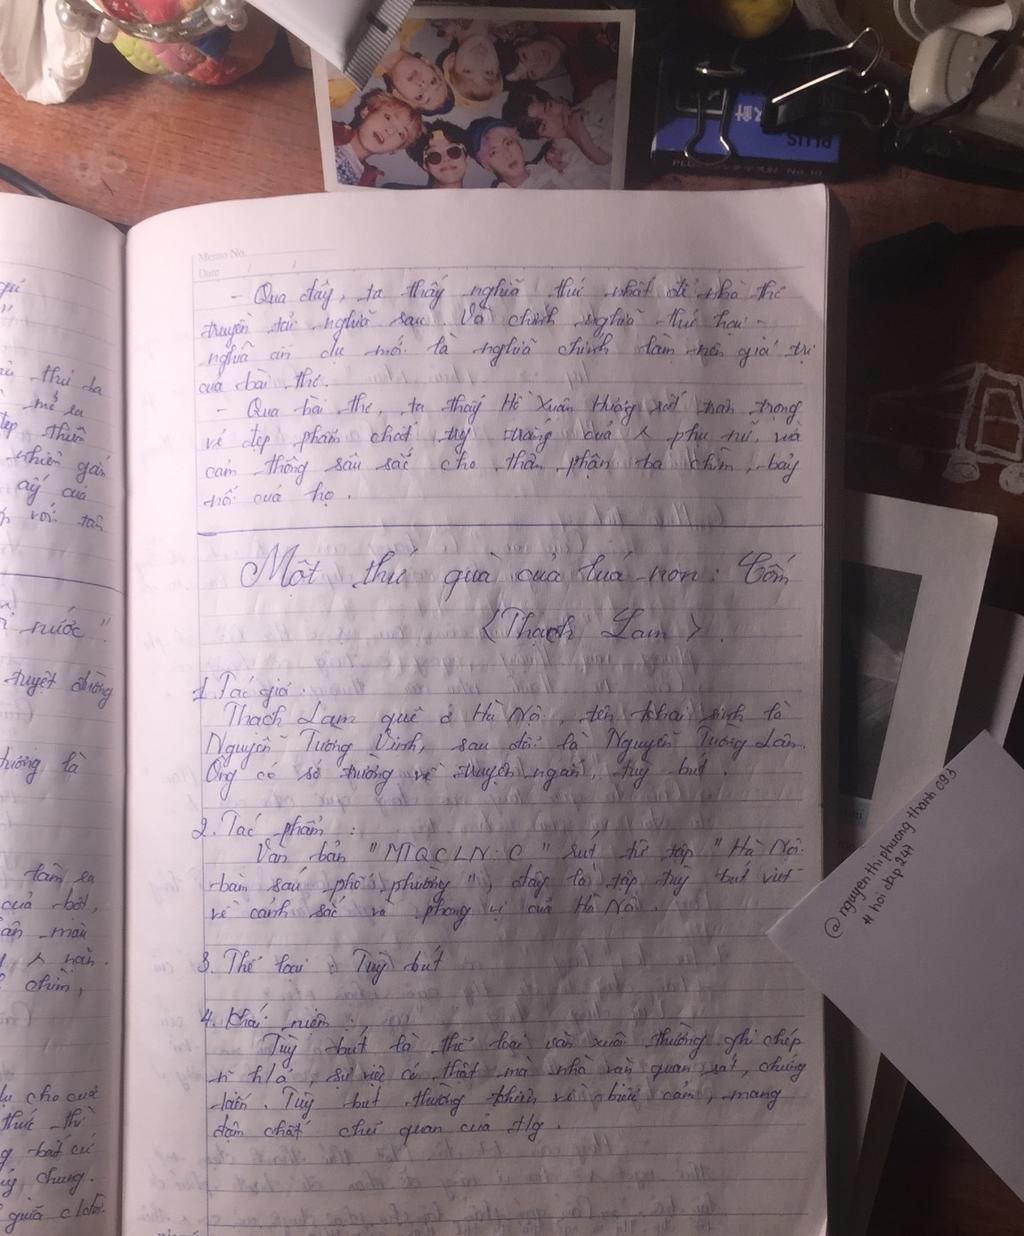 Memo No.
Date / /
- Qua đây, ta thấy nghĩa thứ nhất để nhà thơ
truyền tải nghĩa sau. Và chính nghĩa thứ hai -
nghĩa ẩn dụ mới là nghĩa chính làm nên giá trị
của bài thơ.
- Qua bài thơ, ta thấy Hồ Xuân Hương rất trân trọng
vẻ đẹp phẩm chất, trg trắng của phụ nữ, và
cảm thông sâu sắc cho thân phận ba chìm, bảy
nổi của họ.
Một thứ quà của lúa non: Cốm
<Thạch Lam>.
1. Tác giả:
Thạch Lam quê ở Hà Nội, tên khai sinh là
Nguyễn Tường Vinh, sau đổi là Nguyễn Tường Lân.
Ông có sở trường về truyện ngắn, tuỳ bút.
2. Tác phẩm:
Văn bản "MTQCLN: C" rút từ tập "Hà Nội
băm sáu phố phường", đây là tập tuỳ bút viết
về cảnh sắc và phong vị của Hà Nội.
3. Thể loại: Tuỳ bút
4. Khái niệm:
Tuỳ bút là thể loại văn xuôi thường ghi chép
h/ả, sự việc có thật mà nhà văn quan sát, chứng
kiến. Tuỳ bút thường thiên về biểu cảm, mang
đậm chất chủ quan của t/g.
thứ ba
mẻ ra
đẹp thiên
nhiên gắn
ấy của
với tấn
nước".
tuyệt đường
tượng là
làm ra
của bột,
màu
nặn.
chìm,
cho các
thức thì
bất cứ
chung.
giữa
PLUS
No. 10
@nguyenthiphuongthanh093
# hoidap247